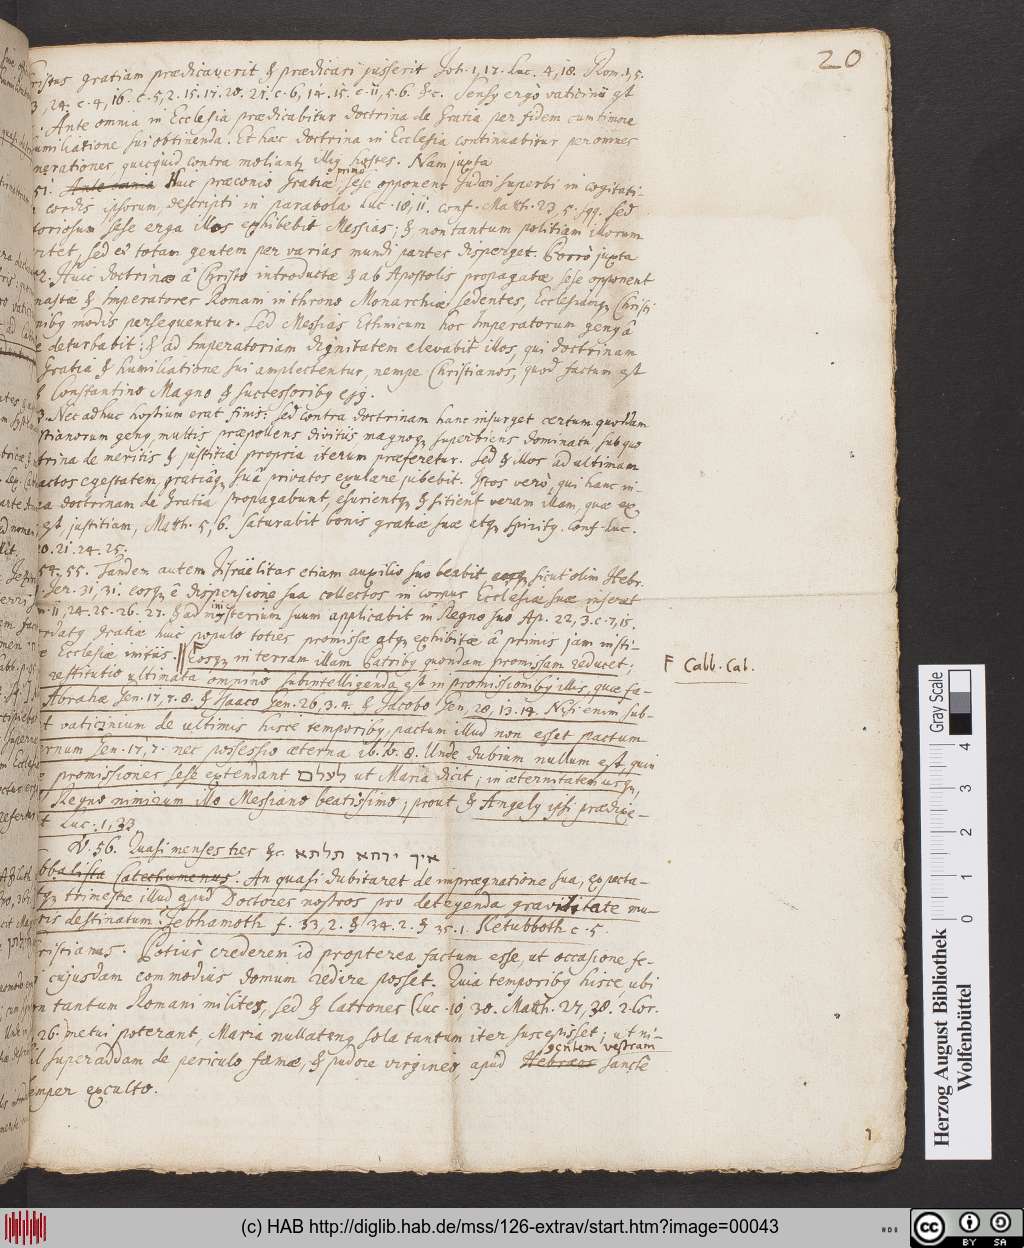 20
gratiam prædicaverit & prædicari jusserit Joh. 1, 17. Luc. 4, 18. Rom. 1, 5.
24. c. 4, 16. c. 5, 2. 15. 17. 20. 21. c. 6, 14. 15. c. 11, 5. 6. &c. Sensq ergò vaticinii est
Ante omnia in Ecclesia prædicabitur doctrina de Gratia per fidem cum timore
humiliatione sui obtinenda. Et hæc doctrina in Ecclesia continuabitur per omnes
nerationes, quicquid contra moliantq illiq hostes. Nam juxta
51. Huic præconio Gratiæ primò sese opponent Judæi superbi in cogitati-
cordis ipsorum, descripti in parabola Luc. 18, 11. conf. Matth. 23, 5. sqq. Sed
toriosum sese erga illos exhibebit Messias; & non tantum politiam illorum
sed & totam gentem per varias mundi partes disperget. Porrò juxta
52. Huic doctrinæ â Christo introductæ & ab Apostolis propagatæ sese opponent
nastæ & Imperatores Romani in throno Monarchiæ sedentes, Ecclesiamq Christi
nibq modis persequentur. Sed Messias Ethnicum hoc Imperatorum genq â
deturbabit; & ad Imperatoriam dignitatem elevabit illos, qui doctrinam
Gratia & humiliatione sui amplectentur, nempe Christianos, quod factum est
Constantino Magno & successoribq ejq.
Nec adhuc hostium erat finis: sed contra doctrinam hanc insurget certum quoddam
stianorum genq, multis præpollens divitiis magnoq superbiens dominatu sub quo
trina de meritis & justitia propria iterum præferetur. Sed & illos ad ultimam
actos egestatem, gratiâq suâ privatos exulare jubebit. Istos verò, qui hanc in-
doctrinam de Gratia propagabunt, esurientq & sitient veram illam, quæ ex
est justitiam, Matth. 5, 6. saturabit bonis gratiæ suæ atq Spiritq. conf. Luc.
20. 21. 24. 25.
54. 55. Tandem autem Israëlitas etiam auxilio suo beabit sicut olim Hebr.
Jer. 31, 31. eosq è dispersione sua collectos in corpus Ecclesiæ suæ inseret
11, 24. 25. 26. 27. & ad ministerium suum applicabit in Regno suo Ap. 22, 3. c. 7, 15.
gratiæ huic populo toties promissæ atq exhibitæ â primis jam insti-
Ecclesiæ initiis. Eosq in terram illam Patribq quondam promissam reducet;
F Cabb. Cal.
restitutio ultima omnino subintelligenda est in promissionibq illis, quæ fa-
Abrahæ Gen. 17, 7. 8. & Isaaco Gen. 26, 3. 4. & Jacobo Gen. 28, 13. 14. Nisi enim sub-
vaticinium de ultimis hisce temporibq, pactum illud non esset pactum
ernum Gen. 17, 7. nec possessio æterna ib. v. 8. Unde dubium nullum est, quin
promissiones sese extendant לעלם ut Maria dicit; in æternitatem usq,
Regno nimirum illo Messiano beatissimo; prout & Angelq ipsi prædixe-
Luc. 1, 33.
V. 56. Quasi menses tres &c. איך ירחא תלתא
bbalista Catechumenus. An quasi dubitaret de imprægnatione sua, expecta-
trimestre illud apud Doctores nostros pro detegenda graviditate mu-
ris destinatum Jebhamoth f. 33, 2. & 34. 2. & 35. 1. Ketubboth c. 5.
ristianus. Potius crederem id propterea factum esse, ut occasione fe-
cujusdam commodius domum redire posset. Quia temporibq hisce, ubi
tantum Romani milites, sed & Lattones (Luc. 10, 30. Matth. 27, 38. 2. Cor.
26.) metui poterant, Maria nullatenq sola tantum iter suscepisset; ut ni-
il superaddam de periculo famæ, & pudore virgineo, apud Hebræos gentem vestram sanctè
emper exculto.
Herzog August Bibliothek
Wolfenbüttel
Gray Scale
0 1 2 3 4
(c) HAB http://diglib.hab.de/mss/126-extrav/start.htm?image=00043
cc BY SA